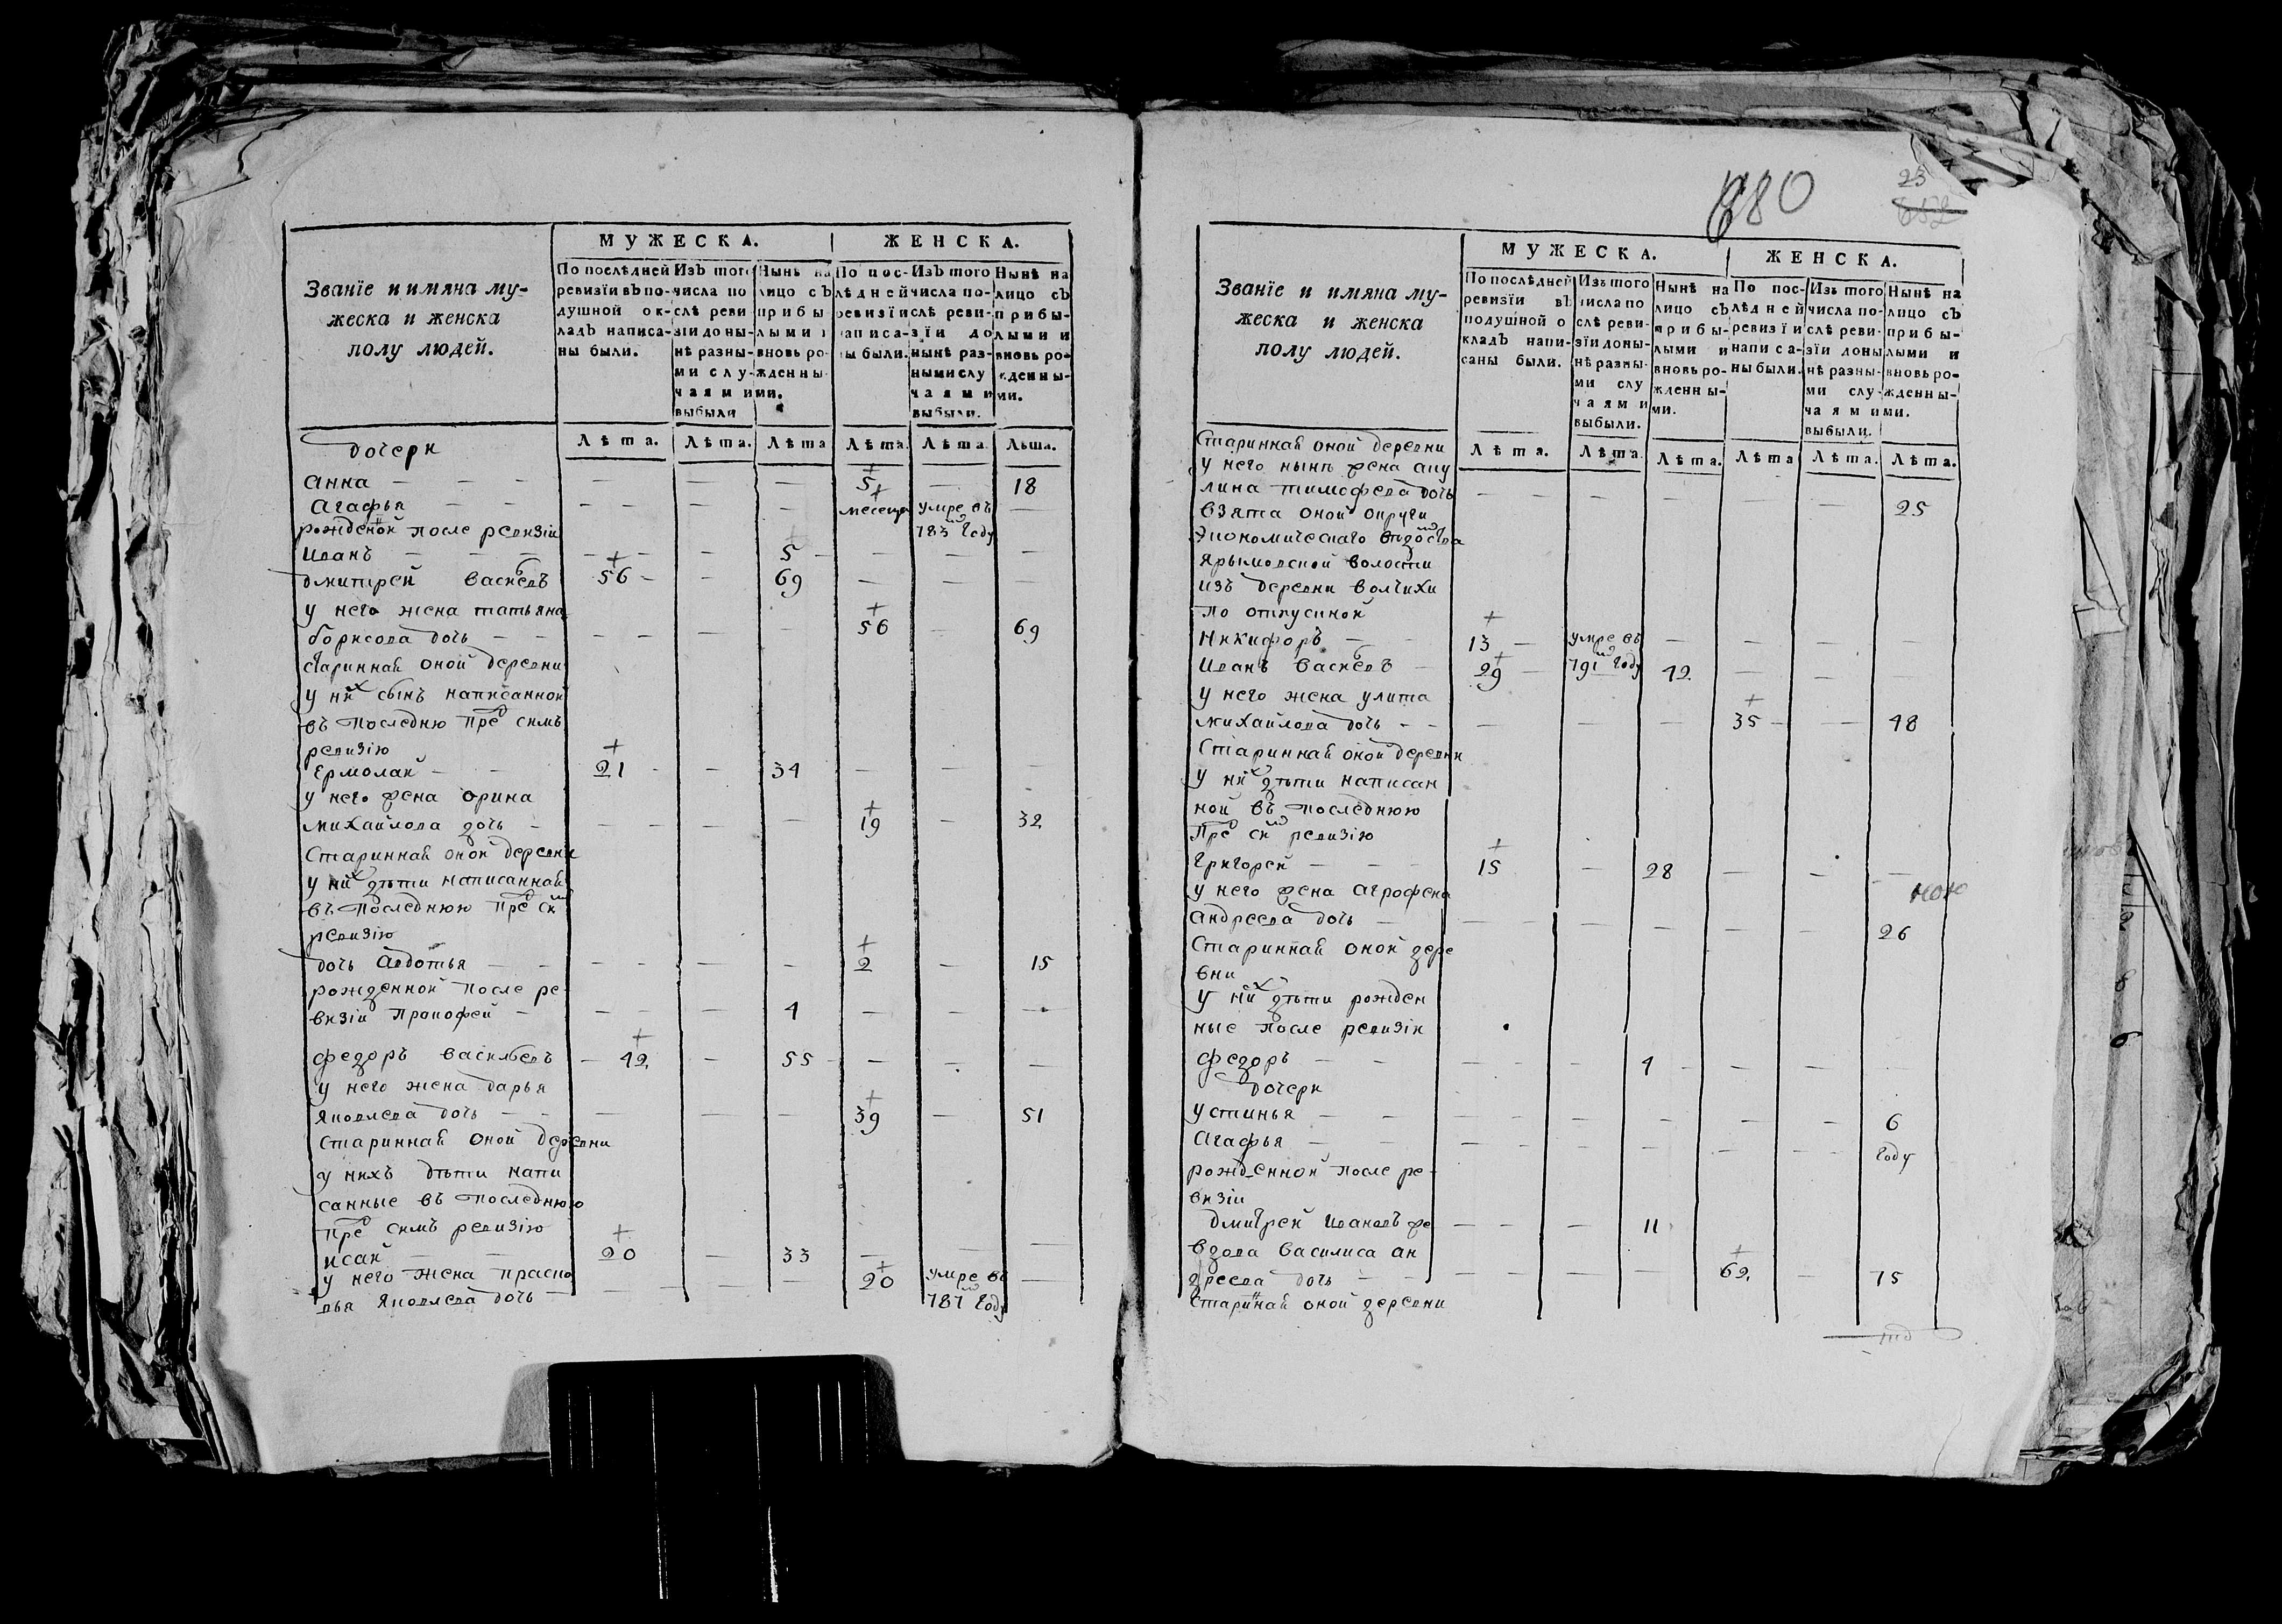 МУЖЕСКА. ЖЕНСКА.
Званїе и имяна му-
жеска и женска
полу людей.
По послѣдней ревизїи въ по-душной о к-ладъ написа-ны были.
Изъ того числа по-слѣ реви-зїи доны-нѣ разны-ми слу-чаями выбыли
Нынѣ на лицо съ прибы-лыми и вновь ро-жденны-ми.
По пос-лѣдней ревизїи написа-ны были.
Изъ того числа по-слѣ реви-зїи до нынѣ раз-ными слу чаями выбыли.
Нынѣ на лицо съ прибы-лыми и вновь ро-жденны-ми.
Лѣта. Лѣта. Лѣта Лѣта. Лѣта. Лѣта.
дочери
Анна — — — — — 5 — 18
Агафья — — — — месеца умре въ —
рожденой после ревизіи 783м году
Иванъ — — — 5 — — —
дмитрей Васильевъ 56 — 69 — — —
у него жена татьяна
борисова дочь — — — — — 56 — 69
старинная оной деревни
у них сынъ написанной
въ последню пред симъ
ревизію
Ермолай — 21 — 34 — — —
у него жена орина
михайлова дочь — — — — 19 — 32
Старинная оной деревни
у них дѣти написанная
въ последнюю пред сим
ревизію
дочь Авдотья — — — — 2 — 15
рожденной после ре
визіи Прокофей — — — 4 — — —
федоръ васильевъ — 42 — 55 — — —
у него жена дарья
яковлева дочь — — — — 39 — 51
Старинная оной деревни
у нихъ дѣти напи
санные въ последнюю
пред симъ ревизію
исай — 20 — 33 — — —
у него жена праско 20 умре въ —
вья яковлева дочь — 787м году
880
23
МУЖЕСКА. ЖЕНСКА.
Званїе и имяна му-
жеска и женска
полу людей.
По послѣдней ревизїи въ подушной о кладъ напи-саны были.
Изъ того числа по слѣ реви-зїи доны-нѣ разны-ми слу чаями выбыли.
Нынѣ на лицо съ прибы-лыми и вновь ро-жденны-ми.
По пос-лѣдней ревизїи написа-ны были.
Изъ того числа по-слѣ реви-зїи доны нѣ разны-ми слу-чаями выбыли.
Нынѣ на лицо съ прибы-лыми и вновь ро-жденны-ми.
Лѣта. Лѣта. Лѣта. Лѣта Лѣта. Лѣта.
Старинная оной деревни
у него нынѣ жена аку
лина тимофеева дочь — — — — — 25
взята оной округи
Экономическаго ведомства
ярымовской волости
изъ деревни волчихи
по отпускной
Никифоръ — 13 — умре въ — — — —
791м году
Иванъ Васильевъ — 29 — 42 — — —
у него жена улита
михайлова дочь — — — — — 35 — 48
Старинная оной деревни
у них дѣти написан
ной въ последнюю
пред сим ревизію
Григорей — — 15 — 28 — — —
у него жена агрофена
андреева дочь — — — — — — 26
ною
Старинная оной дере
вни
у них дѣти рожден
ные после ревизіи
федоръ — — — — 4 — — —
дочери
устинья — — — — — — — 6
Агафья — — — — — — — году
рожденной после ре
визіи
дмитрей Ивановъ же — — 11
вдова василиса ан
дреева дочь — — — — — 62 — 75
Старинная оной деревни